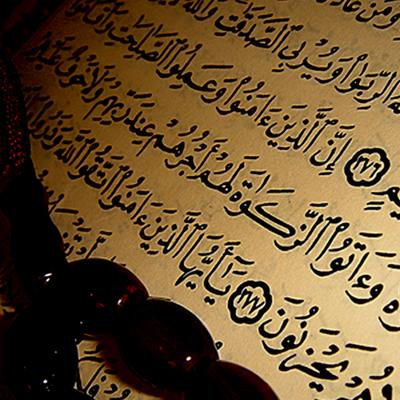 وَمَنْ عَادَ
ٱلرِّبَوٰا۟ وَيُرْبِى ٱلصَّدَقَٰتِ وَٱللَّهُ
يمٍ ٢٧٦ إِنَّ ٱلَّذِينَ ءَامَنُوا۟ وَعَمِلُوا۟ ٱلصَّٰلِحَٰتِ وَأَقَامُوا۟
وَءَاتَوُا۟ ٱلزَّكَوٰةَ لَهُمْ أَجْرُهُمْ عِندَ رَبِّهِمْ وَلَا خَوْفٌ عَلَيْهِمْ
هُمْ يَحْزَنُونَ ٢٧٧ يَٰٓأَيُّهَا ٱلَّذِينَ ءَامَنُوا۟ ٱتَّقُوا۟ ٱللَّهَ وَذَرُوا۟